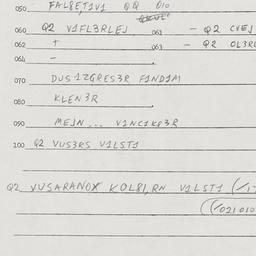 050 FAL8E,T1V1 QQ 010
060 Q2 V1FL3RLEJ 061 - Q2 CVEJ
062 + 063 - Q2 OL3RL
064 -
070 DUS1ZGRES3R F1ND1M
080 KLEN3R
090 MEJN ... V1NC1KP3R
100 Q2 VUS3RS V1LST1
Q2 VUSARANOX KOL81,RN V1LST1 (/1
((/021010